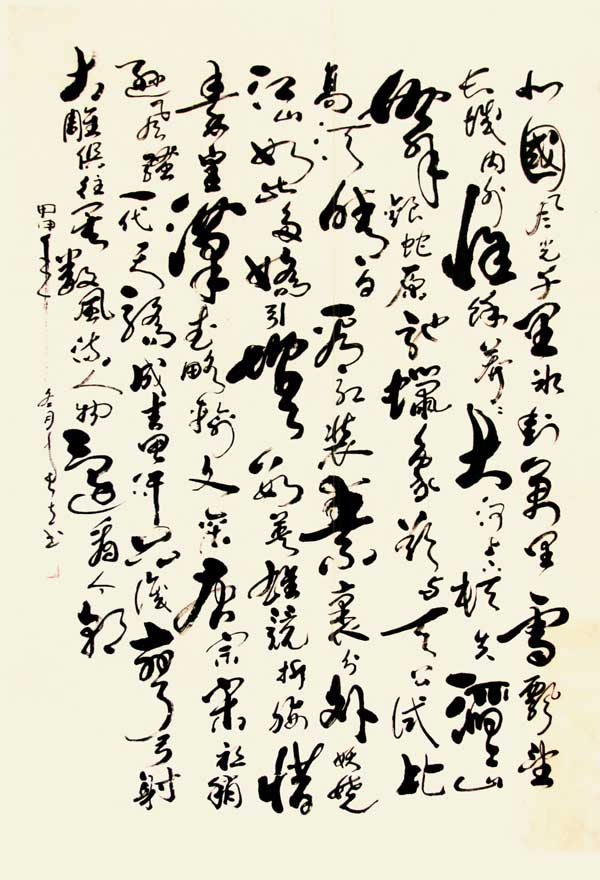 北國風光千里冰封萬里雪飄望
长城内外惟餘莽々大河上下頓失滔々山
舞銀蛇原馳蠟象欲与天公試比
高須晴日看紅裝素裹分外妖嬈
江山如此多嬌引無數英雄競折腰惜
秦皇漢武略輸文采唐宗宋祖稍
遜風騷一代天驕成吉思汗只識彎弓射
大雕俱往矣數風流人物還看今朝
甲申年 冬月